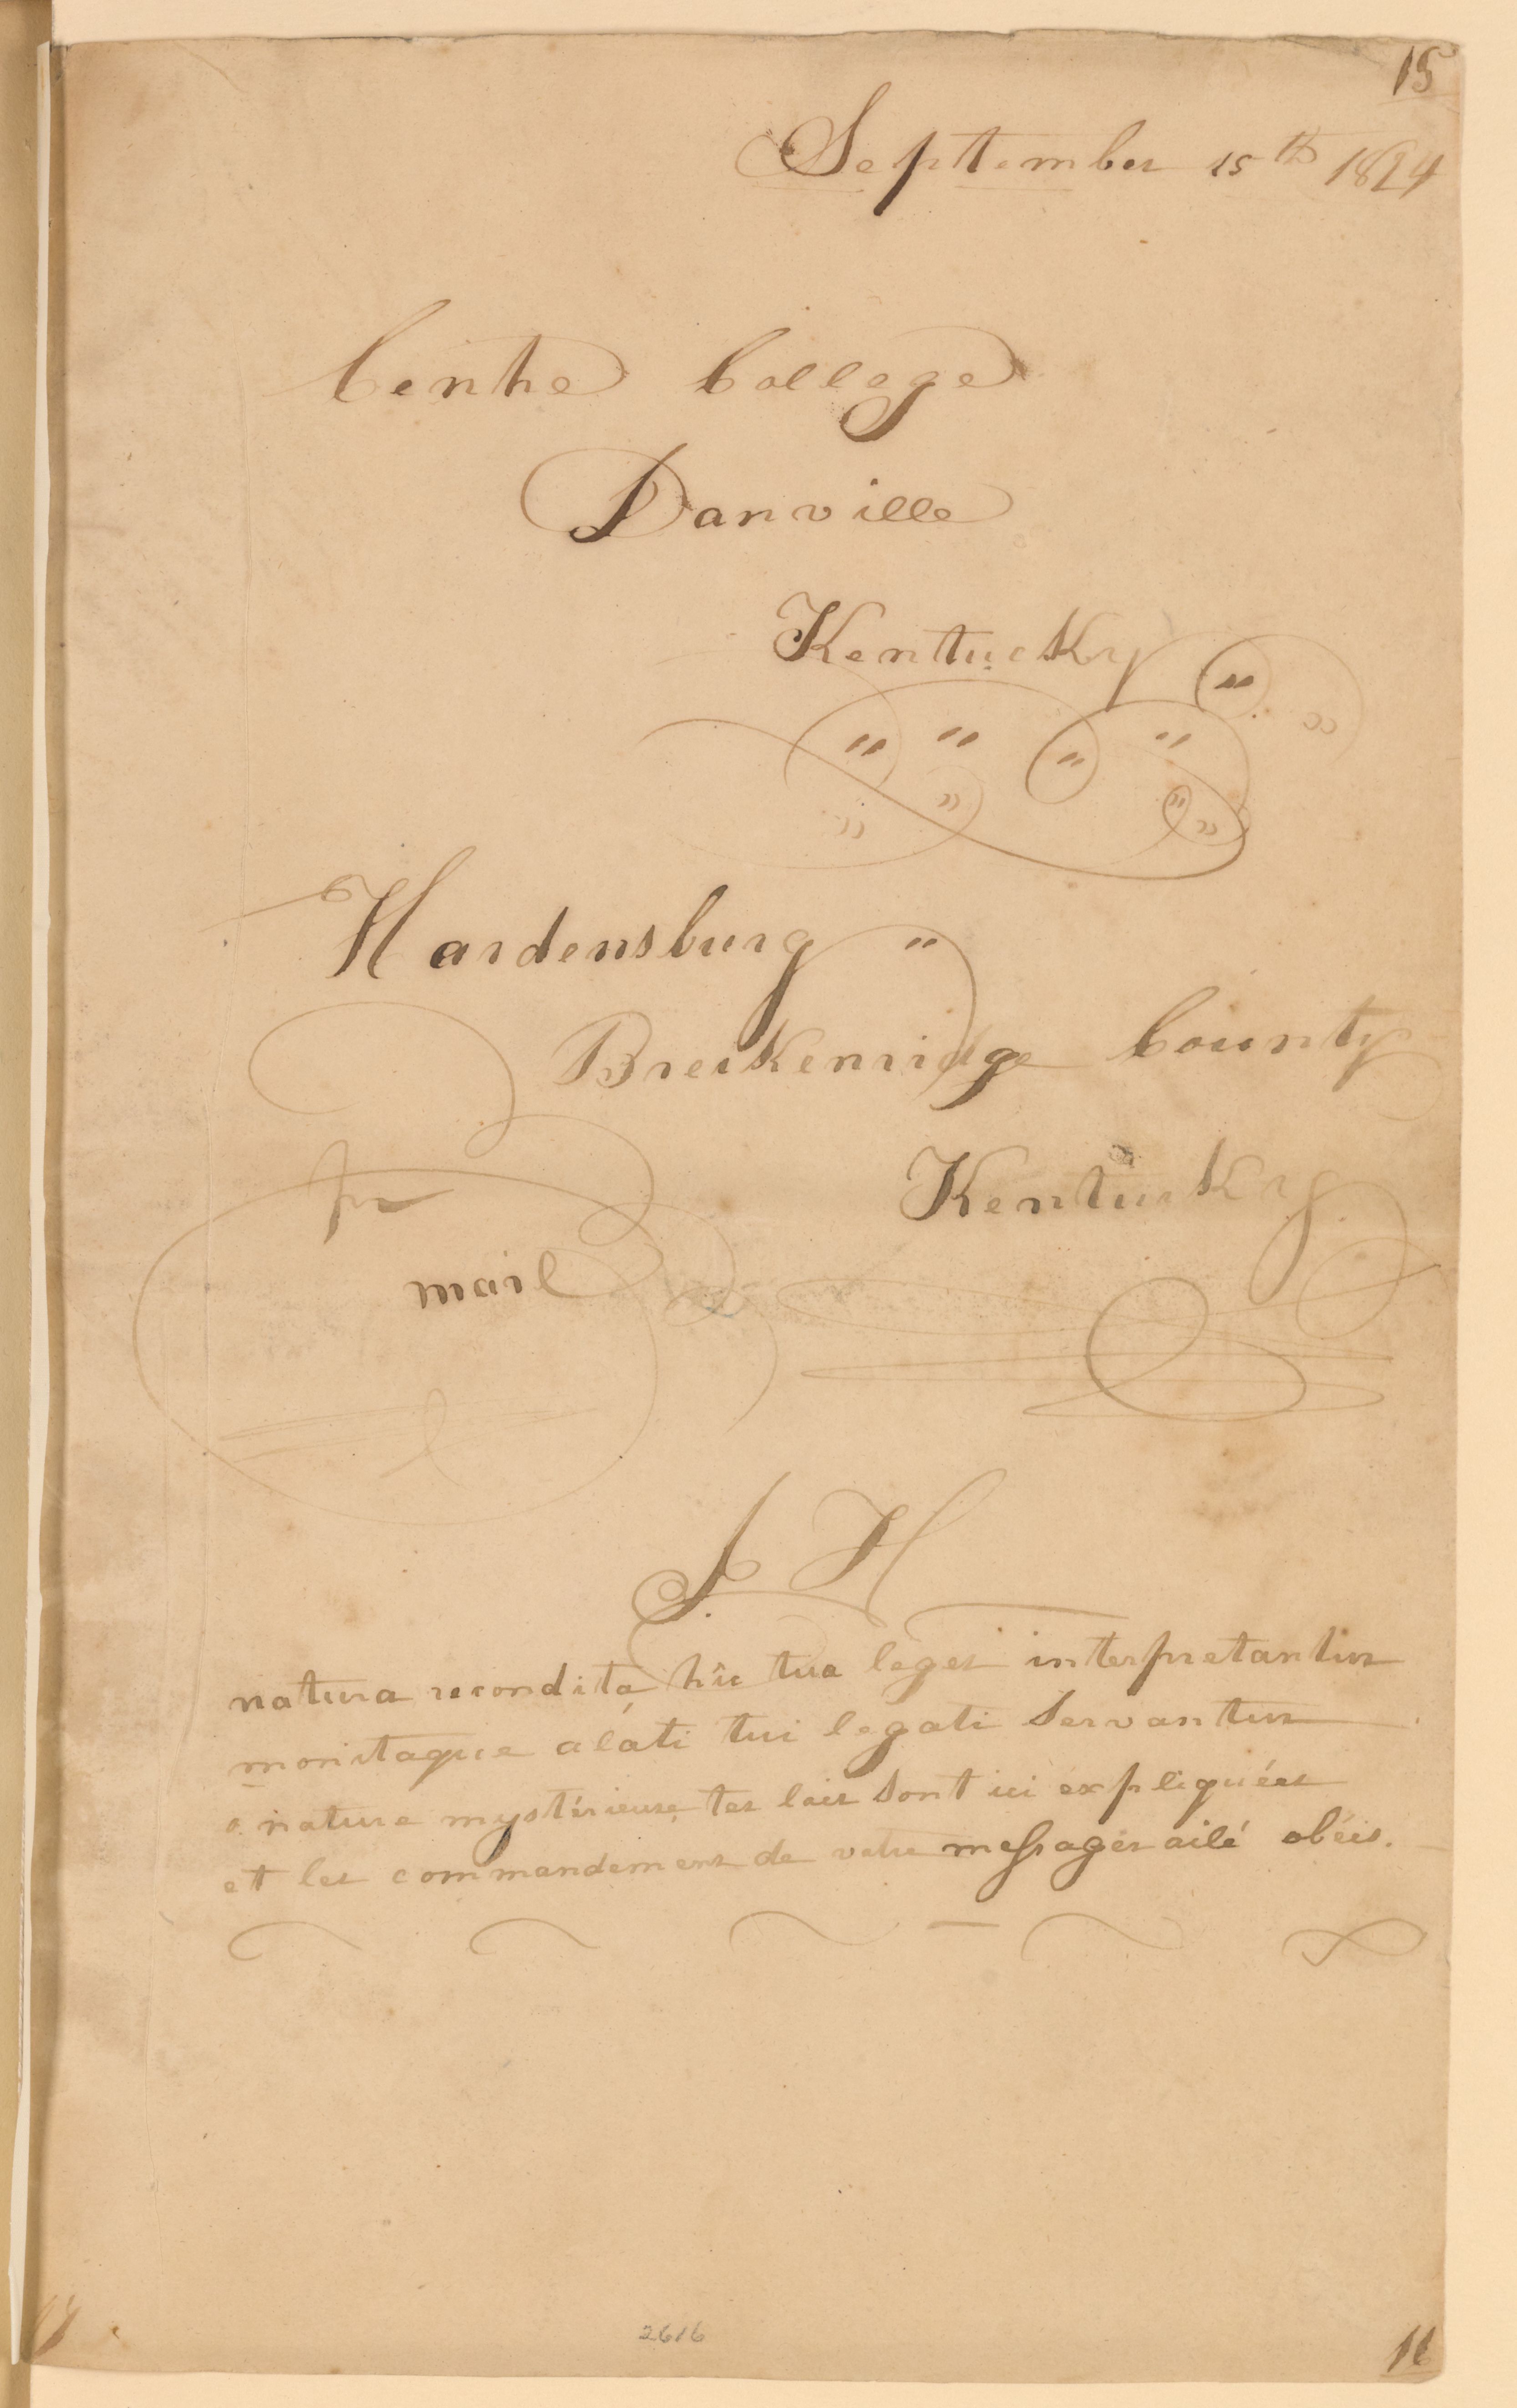 15
September 15th 1824
Centre College
Danville
Kentucky
Hardensburg "
Breckenridge County
Kentucky
pr
mail
J H
natura recondita hîc tua leges interpretantur
monitaque aláti tui legati servantur
o nature mystérieuse tes lois sont ici expliquées
et les commandemens de votre messager ailé obéis.
2616
16